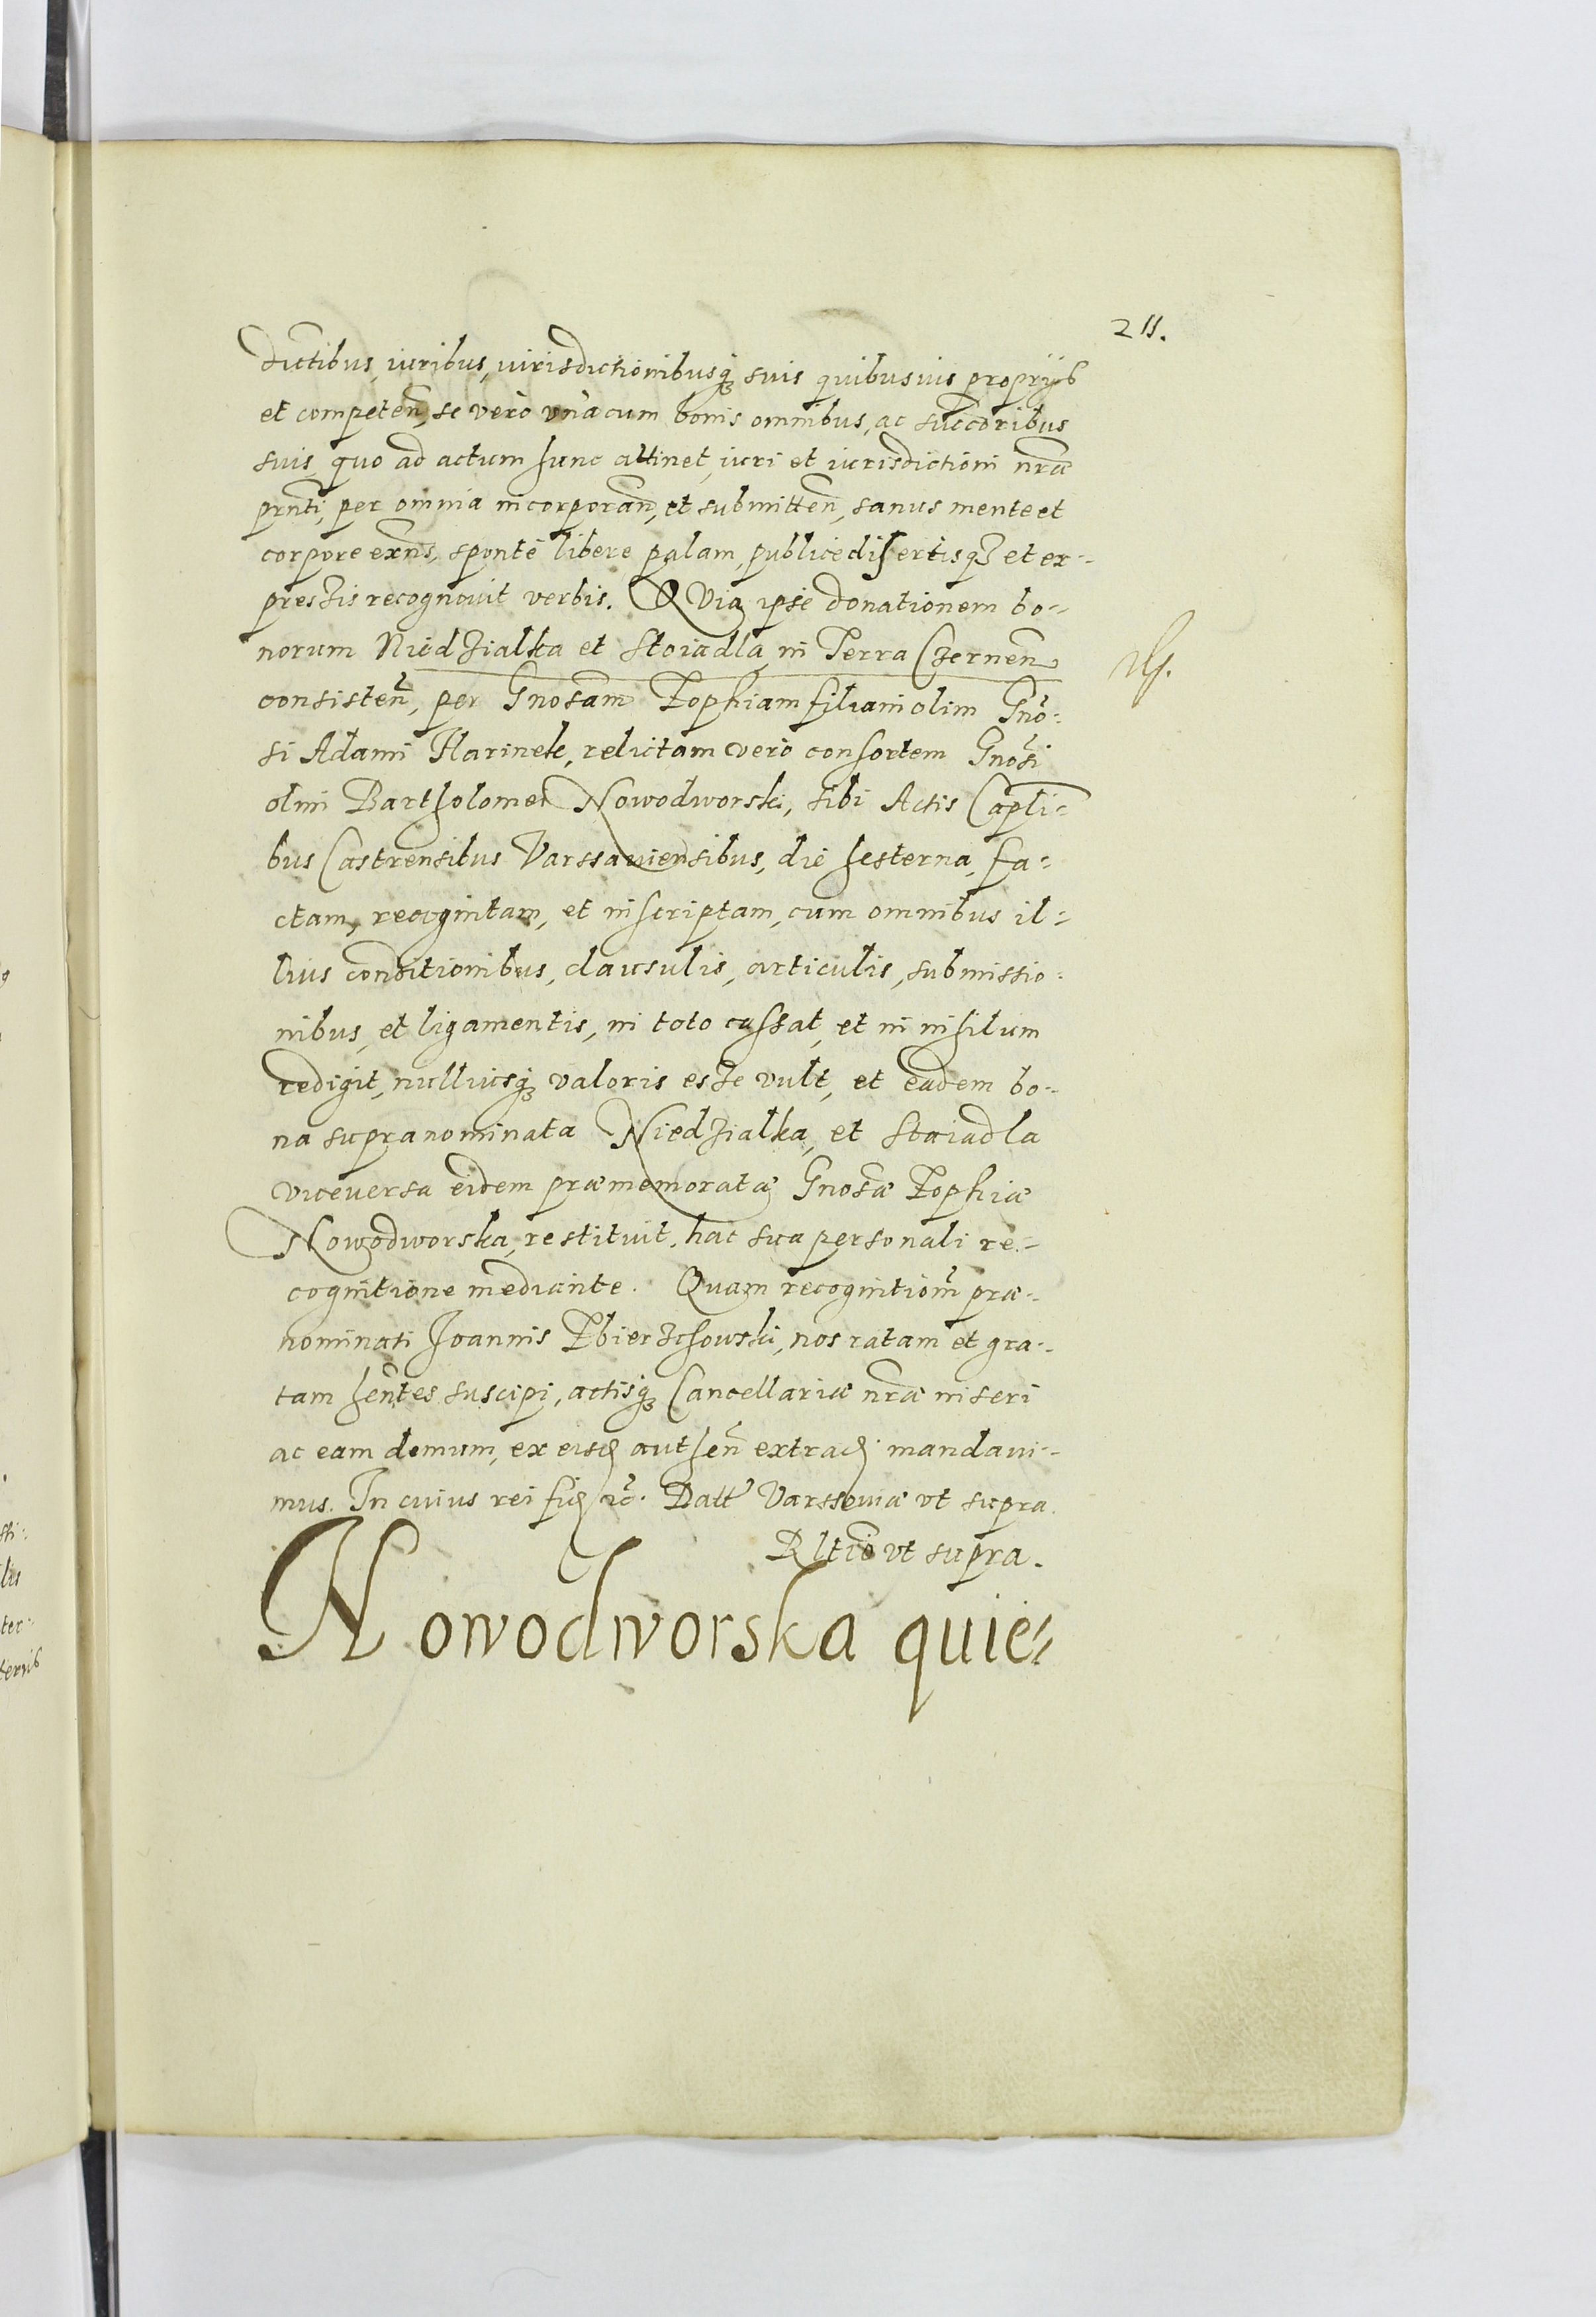 211.
dictibus, iuribus, iurisdictionibusq́ȝ suis quibusuis proprijs
et competeñ, se verò vnà cum bonis omnibus, ac succoribus
suis, quo ad actum hunc attinet, iuri et iurisdictioni nrae
prnti, per omnia incorporañ, et submitteñ, sanus mente et
corpore exns, sponte libere palam, publice disertisqȝ et ex-
pressis recognouit verbis. Quia ipse donationem bo-
norum Niedzialka et Stoiadla in Terra Czerneñ
consisteñ, per Gnosam Zophiam filiam olim Gno-
si Adami Harinek, relictam verò consortem Gnosi
olim Bartholomei Nowodworski, sibi Actis Capli-
bus Castrensibus Varssauiensibus, die hesterna, fa-
ctam, recognitam, et inscriptam, cum omnibus il-
lius conditionibus, clausulis, articulis, submissio-
nibus, et ligamentis, in toto cassat, et in nihilum
redigit, nulliusq́ȝ valoris esse vult, et eadem bo-
na supranominata Niedzialka, et Stoiadla
viceuersa eidem praememoratae Gnosae Zophiae
Nowodworska, restituit, hac sua personali re-
cognitione mediante. Quam recognitionem prae-
nominati Joannis Zbierzchowski, nos ratam et gra-
tam hentes suscipi, actisq́ȝ Cancellariae nrae inseri
ac eam demum, ex eisd autheñ extradi mandaui-
mus. In cuius rei fid etc. Datt Varssouiae vt supra.
Rltio vt supra.
Nowodworska quie-